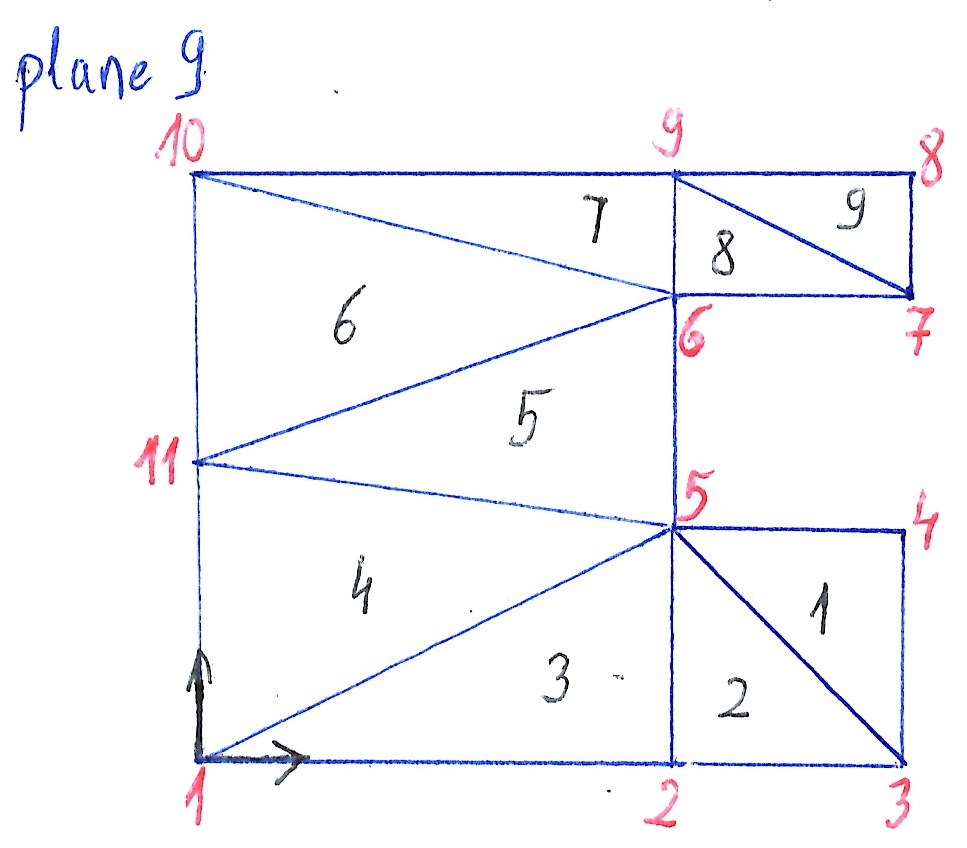 plane 9
10 9 8
7 8 9
6
6 7
5
11
5 4
4 1
3 2
1 2 3